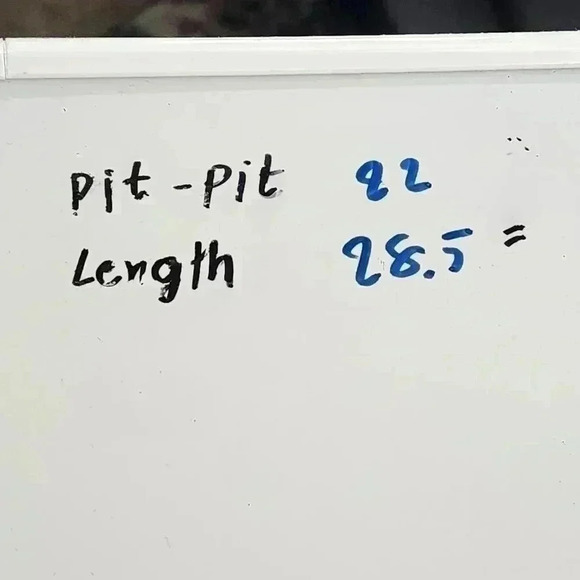 Pit-Pit 22
Length 28.5 =